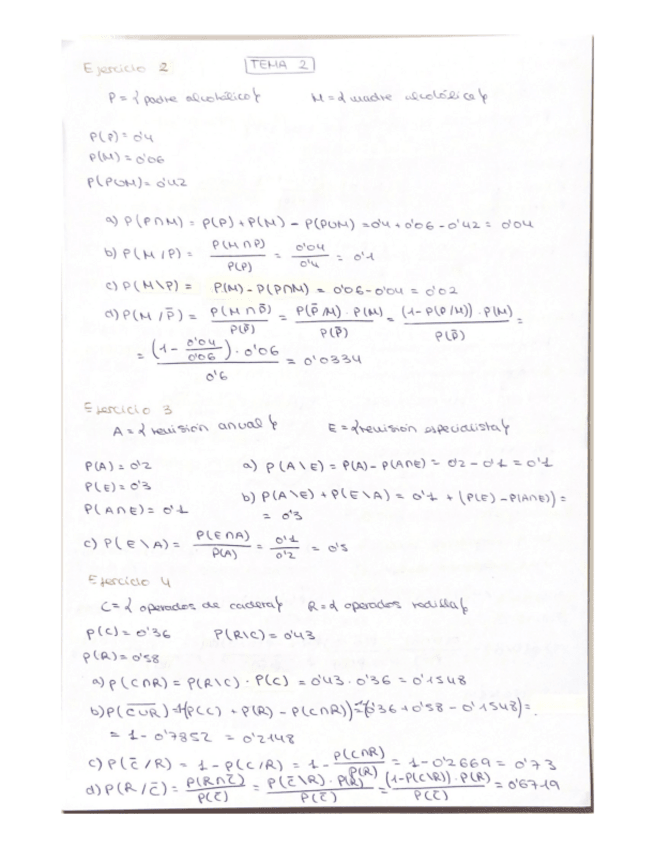 Ejercicio 2 TEMA 2
P = { padre alcohólico } M = { madre alcohólica }
P(P) = 0'4
P(M) = 0'06
P(P∪M) = 0'42
a) P(P∩M) = P(P) + P(M) - P(P∪M) = 0'4 + 0'06 - 0'42 = 0'04
b) P(M/P) = P(M∩P)/P(P) = 0'04/0'4 = 0'1
c) P(M\P) = P(M) - P(P∩M) = 0'06 - 0'04 = 0'02
d) P(M/P̄) = P(M∩P̄)/P(P̄) = P(P̄/M)·P(M)/P(P̄) = (1-P(P/M))·P(M)/P(P̄) =
= (1 - 0'04/0'06)·0'06/0'6 = 0'0334
Ejercicio 3
A = { revisión anual } E = { revisión especialista }
P(A) = 0'2 a) P(A\E) = P(A) - P(A∩E) = 0'2 - 0'1 = 0'1
P(E) = 0'3
P(A∩E) = 0'1 b) P(A\E) + P(E\A) = 0'1 + (P(E) - P(A∩E)) =
= 0'3
c) P(E\A) = P(E∩A)/P(A) = 0'1/0'2 = 0'5
Ejercicio 4
C = { operados de cadera } R = { operados rodilla }
P(C) = 0'36 P(R\C) = 0'43
P(R) = 0'58
a) P(C∩R) = P(R\C) · P(C) = 0'43 · 0'36 = 0'1548
b) P(C̅∪̅R̅) = 1-(P(C) + P(R) - P(C∩R)) = 1-(0'36 + 0'58 - 0'1548) =
= 1 - 0'7852 = 0'2148
c) P(C̄/R) = 1 - P(C/R) = 1 - P(C∩R)/P(R) = 1 - 0'2669 = 0'73
d) P(R/C̄) = P(R∩C̄)/P(C̄) = P(C̄\R)·P(R)/P(C̄) = (1-P(C\R))·P(R)/P(C̄) = 0'6719